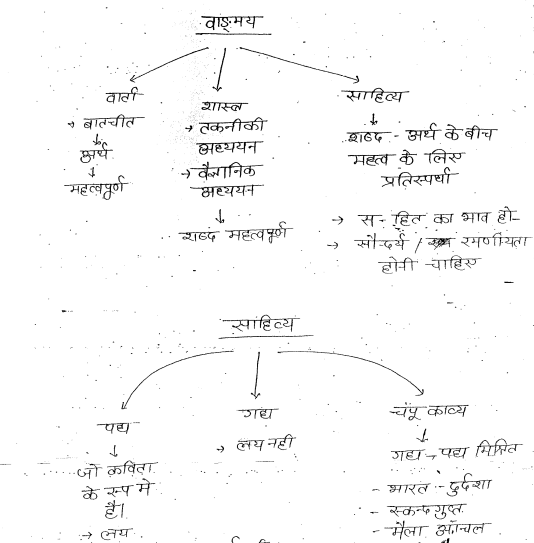 वाङ्मय
वार्ता
→ बातचीत
↓
अर्थ
↓
महत्वपूर्ण
शास्त्र
→ तकनीकी
अध्ययन
→ वैज्ञानिक
अध्ययन
↓
शब्द महत्वपूर्ण
साहित्य
↓
शब्द - अर्थ के बीच
महत्व के लिए
प्रतिस्पर्धा
→ स - हित का भाव हो-
→ सौन्दर्य / रमणीयता
होनी चाहिए
साहित्य
पद्य
↓
जो कविता
के रूप मे
है।
→ लय
गद्य
→ लय नही
चंपू काव्य
↓
गद्य - पद्य मिश्रित
- भारत - दुर्दशा
- स्कन्दगुप्त
- मैला आँचल